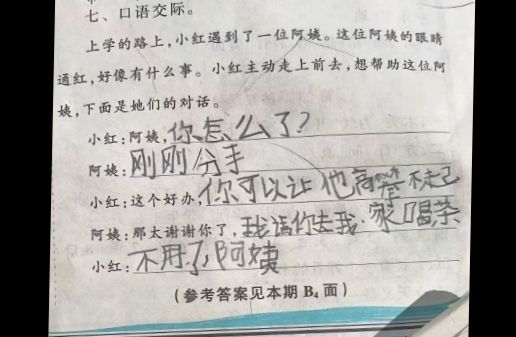 七、口语交际。
上学的路上,小红遇到了一位阿姨。这位阿姨的眼睛
通红,好像有什么事。小红主动走上前去,想帮助这位阿
姨,下面是她们的对话。
小红:阿姨,你怎么了?
阿姨:刚刚分手
小红:这个好办,你可以让他高攀不起
阿姨:那太谢谢你了,我请你去我家喝茶
小红:不用了,阿姨
(参考答案见本期B4面)